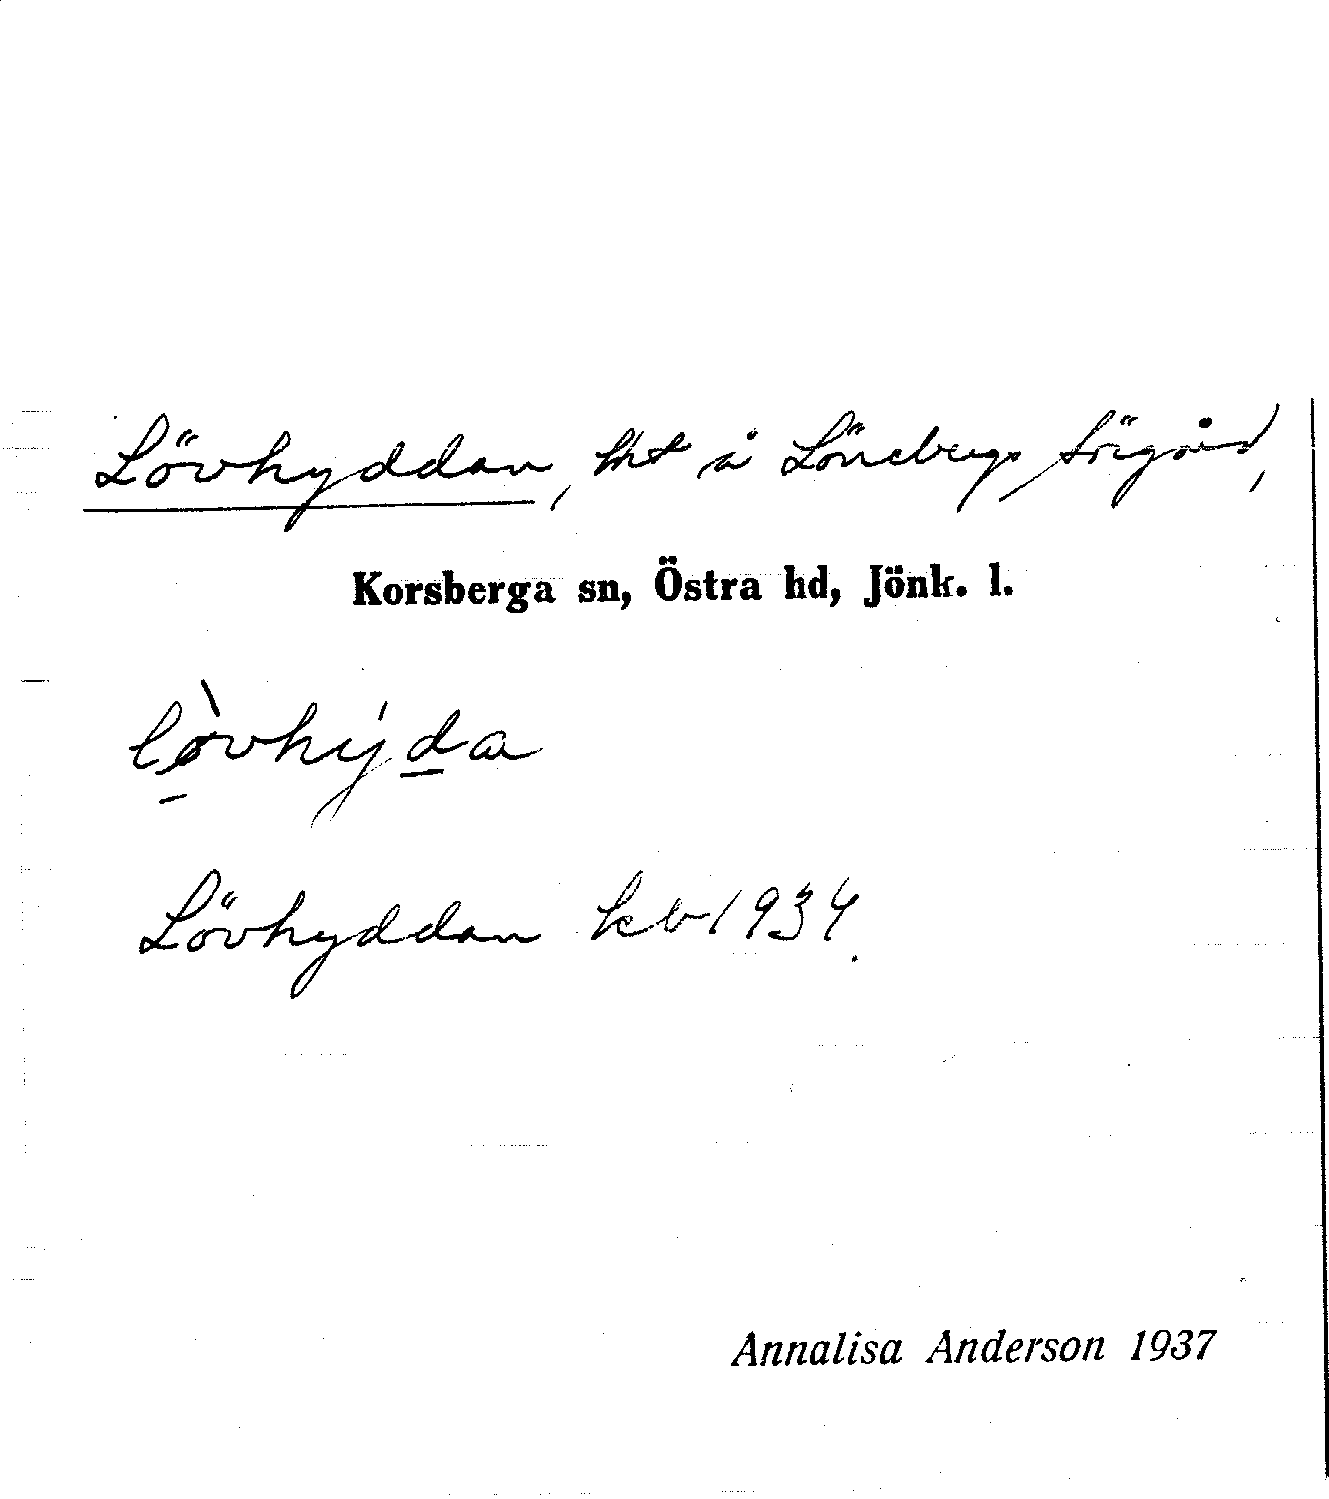 Lövhyddan, tht å Löneberga Sörgård,
Korsberga sn, Östra hd, Jönk. l.
lø̀vhýda
Lövhyddan kb 1934.
Annalisa Anderson 1937